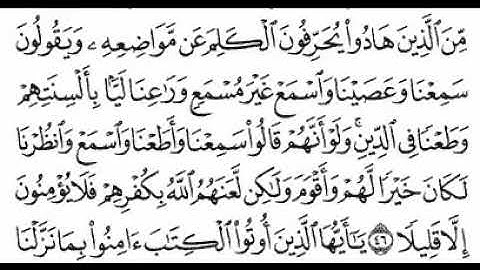 مِّنَ ٱلَّذِينَ هَادُوا۟ يُحَرِّفُونَ ٱلْكَلِمَ عَن مَّوَاضِعِهِۦ وَيَقُولُونَ
سَمِعْنَا وَعَصَيْنَا وَٱسْمَعْ غَيْرَ مُسْمَعٍ وَرَٰعِنَا لَيًّۢا بِأَلْسِنَتِهِمْ
وَطَعْنًا فِى ٱلدِّينِ ۚ وَلَوْ أَنَّهُمْ قَالُوا۟ سَمِعْنَا وَأَطَعْنَا وَٱسْمَعْ وَٱنظُرْنَا
لَكَانَ خَيْرًا لَّهُمْ وَأَقْوَمَ وَلَٰكِن لَّعَنَهُمُ ٱللَّهُ بِكُفْرِهِمْ فَلَا يُؤْمِنُونَ
إِلَّا قَلِيلًا ۝٤٦ يَٰٓأَيُّهَا ٱلَّذِينَ أُوتُوا۟ ٱلْكِتَٰبَ ءَامِنُوا۟ بِمَا نَزَّلْنَا